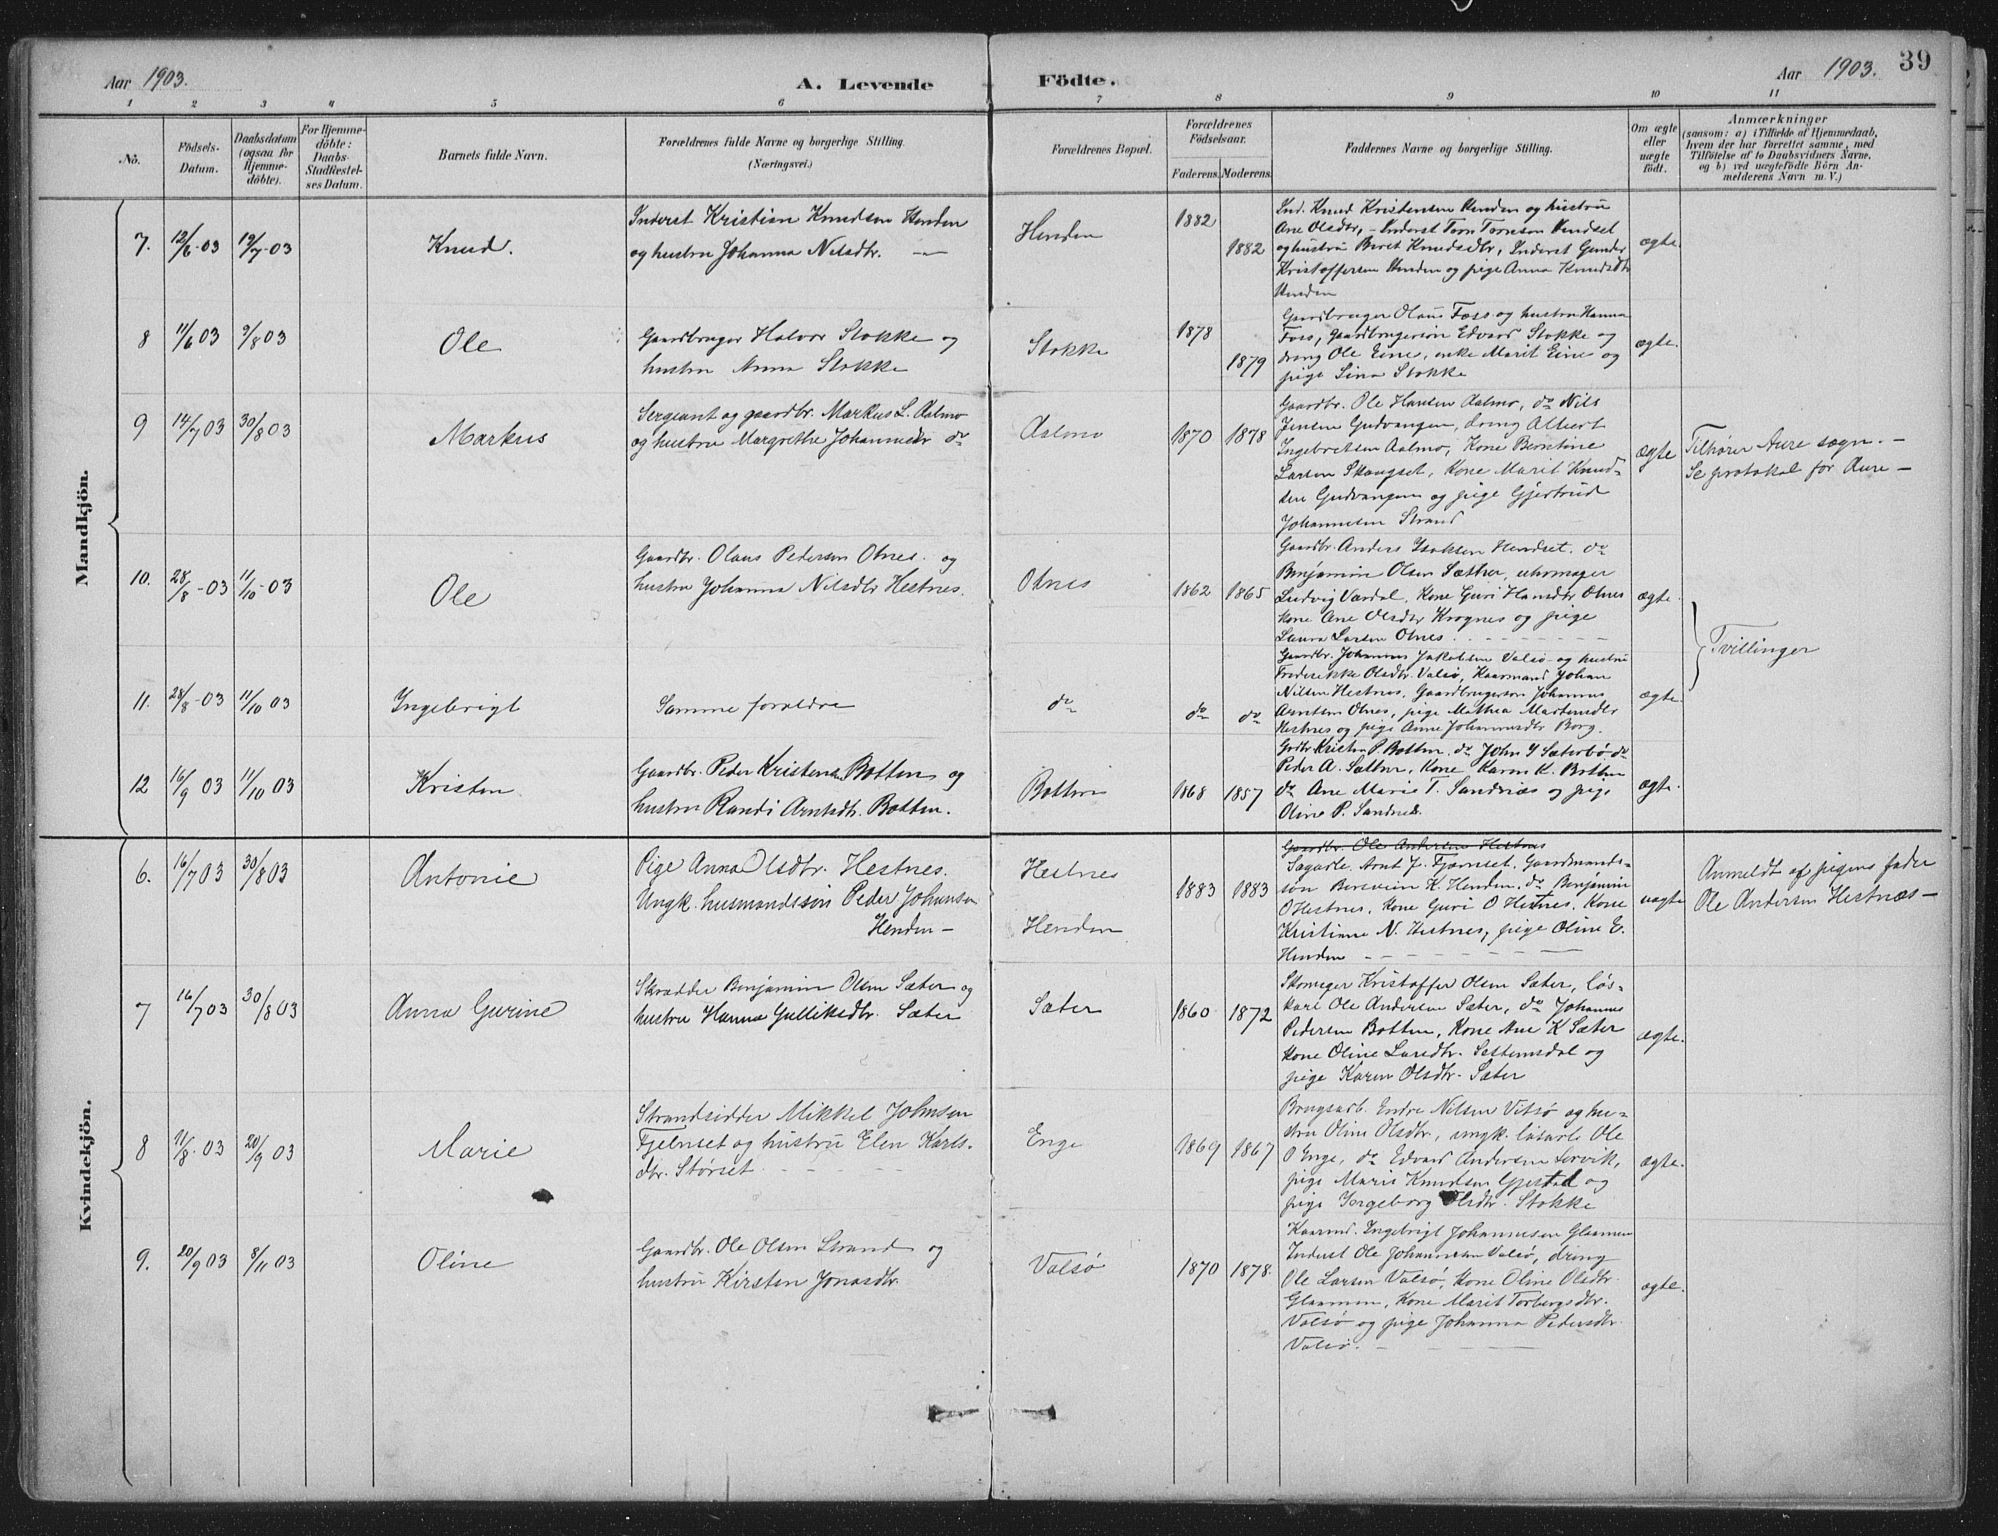 Aar 1903.
A. Levende Födte.
Aar 1903. 39
1 2 3 4 5 6 7 8 9 10 11
No.
Födsels-Datum.
Daabsdatum (ogsaa for Hjemme-döbte).
For Hjemme-döbte: Daabs-Stadfæstel-ses Datum.
Barnets fulde Navn.
Forældrenes fulde Navne og borgerlige Stilling.
(Næringsvei.)
Forældrenes Bopæl.
Forældrenes Födselsaar.
Faderens. Moderens.
Faddernes Navne og borgerlige Stilling.
Om ægte eller uægte födt.
Anmærkninger
(saasom: a) i Tilfælde af Hjemmedaab,
hvem der har forrettet samme, med
Tilföielse af to Daabsvidners Navne,
og b) ved uægtefödte Börn An-
melderens Navn m. V.)
Mandkjön.
7. 12/6-03 19/7-03 Knud.
Inderst Kristian Knudsen Henden
og hustru Johanna Nilsdtr. —"—
Henden 1882 1882
Ind. Knud Kristensen Henden og hustru
Ane Olsdtr, - Inderst Tore Toresen Vindset
og hustru Beret Knudsdtr, Inderst Gunder
Kristoffersen Henden og pige Anna Knudsdtr
Henden
ægte.
8 11/6 03 9/8 03 Ole
Gaardbruger Halvor Stokke og
hustru Anna Stokke
Stokke 1878 1879
Gaardbruger Olaus Foss og hustru Hanna
Foss, gaardbrugersön Edvard Stokke og
dreng Ole Eine, enke Marit Eine og
pige Sina Stokke
ægte.
9 14/7 03 30/8 03 Markus
Sergeant og gaardbr. Markus L. Aalmo
og hustru Margrethe Johannesdr do
Aalmo 1870 1878
Gaardbr. Ole Hansen Aalmo, do Nils
Jensen Gudvangen, dreng Albert
Ingebretsen Aalmo, Kone Berntine
Larsen Skougset, Kone Marit Knud-
sen Gudvangen og pige Gjertrud
Johannesen Strand
ægte
Tilhører Aure sogn. —
Se protokol for Aure —
10. 28/8-03 11/10-03 Ole
Gaardbr. Olaus Pedersen Otnes. og
hustru Johanna Nilsdtr Hestnes.
Otnes 1862 1865
Gaardbr. Anders Isaksen Hendset. do
Benjamin Olsen Sæther, uhrmager
Ludvig Værdal, Kone Guri Hansdtr Otnes
Kone Ane Olsdtr Krognes og pige
Laura Larsen Otnes.
ægte.
Tvillinger
11. 28/8-03 11/10 03 Ingebrigt
Samme foreldre
do do do
Gaardbr. Johannes Jakobsen Valsø og hustru
Frederikke Olsdtr. Valsø, Kaarmand Johan
Nilsen Hestnes, Gaardbrugersön Johannes
Arntsen Otnes, pige Mathea Martensdtr
Hestnes og pige Anne Johannesdtr Borg.
ægte.
12 16/9 03 11/10 03 Kristen
Gaardbr. Peder Kristensen Botten og
hustru Randi Arntsdtr. Botten.
Botten 1868 1857
Gdbr Kristen P Botten. do John J Sæterbø do
Peder A. Sættner, Kone Karen K. Botten
do Ane Marie T. Sandnæs og pige
Oline P. Sandnes.
ægte.
Kvindekjön.
6. 16/7 03 30/8 03 Antonie
Pige Anna Olsdtr. Hestnes.
Ungk. husmandssön Peder Johansen
Henden —
Hestnes
Henden
1883 1883
Gaardbr. Ole Andersen Hestnes
Sagarb. Arnt J. Tjernset, Gaardmands-
søn Bersvein K. Henden. do Benjamin
O Hestnes, Kone Guri O Hestnes, Kone
Kristiane N. Hestnes, pige Oline E.
Henden
uægte
Anmeldt af pigens fader
Ole Andersen Hestnæs —
7 16/7 03 30/8 03 Anna Gurine
Skrædder Benjamin Olsen Sæter og
hustru Hanna Gulliksdtr. Sæter
Sæter 1860 1872
Skomager Kristoffer Olsen Sæter, løs-
karl Ole Andersen Sæter, do Johannes
Pedersen Botten, Kone Ane K Sæter
Kone Oline Larsdtr. Settemsdal og
pige Karen Olsdtr. Sæter
ægte.
8 11/8-03 20/9 03 Marie
Strandsidder Mikkel Johnsen
Tjelnset og hustru Elen Karls-
dtr. Størset
Enge 1869 1867
Brugsarb. Endre Nilsen Vitsø og hu-
stru Oline Olsdtr, ungk. løsarb. Ole
O Enge, do Edvard Andersen Lervik,
pige Marie Knudsen Gjestal og
pige Ingeborg Olsdtr. Stokke
ægte.
9. 20/9 03 8/11 03 Oline
Gaardbr. Ole Olsen Strand og
hustru Kirsten Jonasdtr.
Valsø 1870 1878.
Kaarmd. Ingebrigt Johannesen Glaamen
Inderst Ole Johannesen Valsø, dreng
Ole Larsen Valsø, Kone Oline Olsdtr.
Glaamen, Kone Marit Torbergsdtr.
Valsø og pige Johanna Pedersdtr.
Valsø.
ægte.